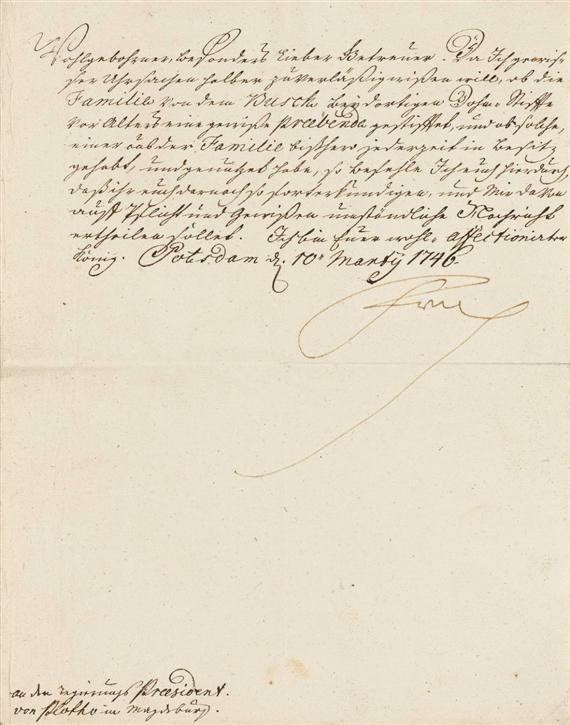 Wohlgebohrner, besonders Lieber Getreuer. Da Ich gewis-
ser Uhrsachen halber zuverläßig wißen will, ob die
Familie von dem Busch beydortigen Dohm-Stiffte
vor Alters eine gewiße Præbenda gestifftet, und ob solche,
einer aus der Familie bißhero jederzeit in Besitz
gehabt, und genutzet habe, so befehle Ich euch hierdurch,
daß ihr euch darnach so fort erkundigen, und Mir davon
auf Pflicht und Gewißen umständliche Nachricht
ertheilen sollet. Ich bin Euer wohl- affectionirter
König. Potsdam d. 10t Martij 1746
Frch
an den regierungs Præsident.
von Plotho in Magdeburg.